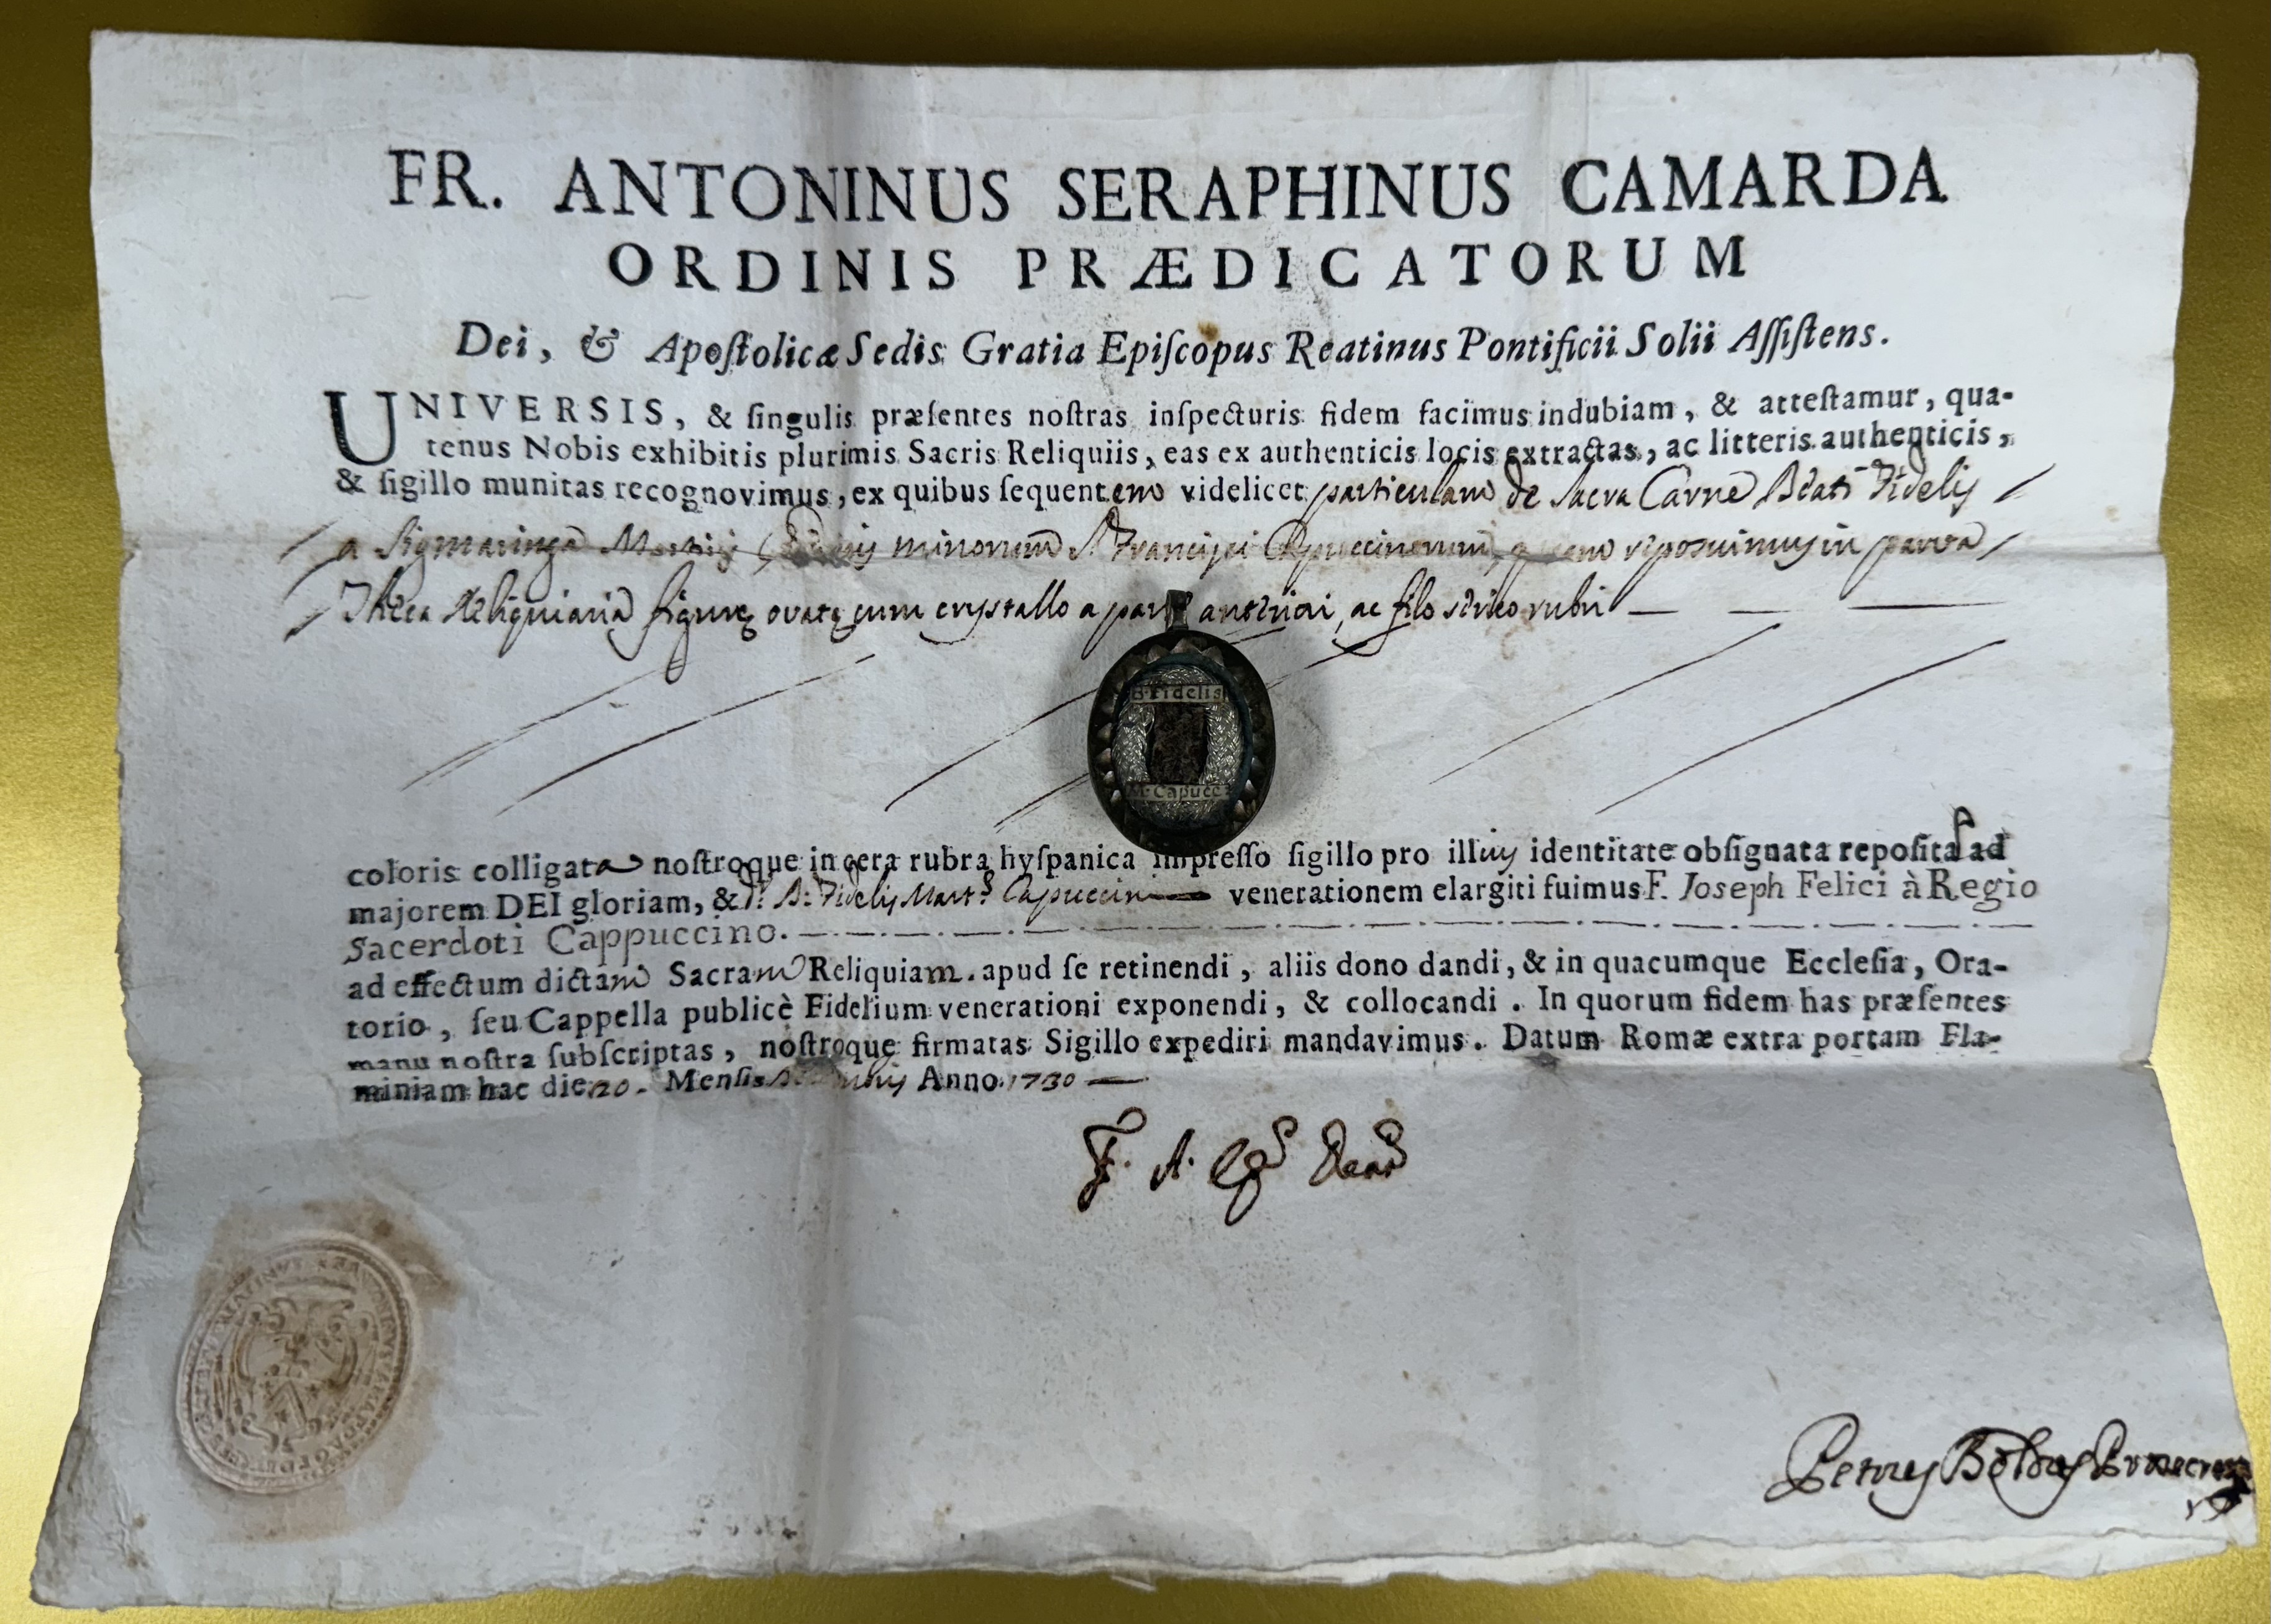 FR. ANTONINUS SERAPHINUS CAMARDA
ORDINIS PRÆDICATORUM
Dei, & Apoſtolicæ Sedis Gratia Epiſcopus Reatinus Pontificii Solii Aſſiſtens.
UNIVERSIS, & ſingulis præſentes noſtras inſpecturis fidem facimus indubiam, & atteſtamur, qua-
tenus Nobis exhibitis plurimis Sacris Reliquiis, eas ex authenticis locis extractas, ac litteris authenticis,
& ſigillo munitas recognovimus, ex quibus ſequentem videlicet particulam de Sacra Carne Beati Fidelis
a Sigmaringa Martiris minorum S. Francisci Capuccinorum, reposuimus in parva
Theca Reliquiaria figuræ ovatæ cum crystallo a parte anteriori, ac filo serico rubri
B. Fidelis
M. Capucc.
coloris colligata noſtroque in cera rubra hyſpanica impreſſo ſigillo pro illius identitate obſignata repoſita ad
majorem DEI gloriam, & d. B. Fidelis Mart. Capuccini venerationem elargiti fuimus F. Joseph Felici à Regio
Sacerdoti Cappuccino.
ad effectum dictam Sacram Reliquiam apud ſe retinendi, aliis dono dandi, & in quacumque Eccleſia, Ora-
torio, ſeu Cappella publicè Fidelium venerationi exponendi, & collocandi. In quorum fidem has præſentes
manu noſtra ſubſcriptas, noſtroque firmatas Sigillo expediri mandavimus. Datum Romæ extra portam Fla-
miniam hac die 20. Menſis Anno 1730
F. A.
Petrus